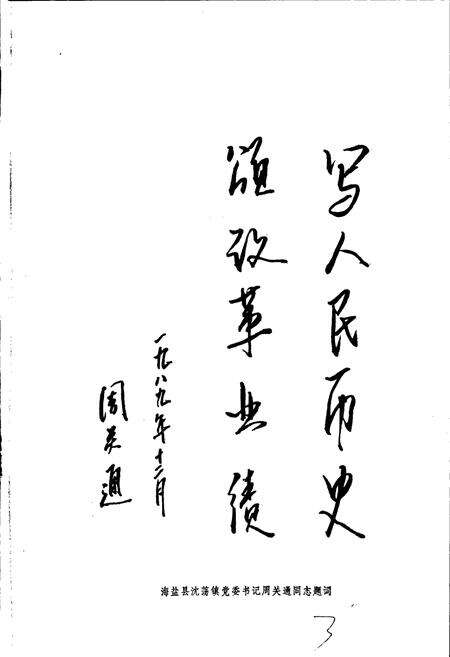 写人民历史
颂改革业绩
一九八九年十二月
周关通
海盐县沈荡镇党委书记周关通同志题词
3